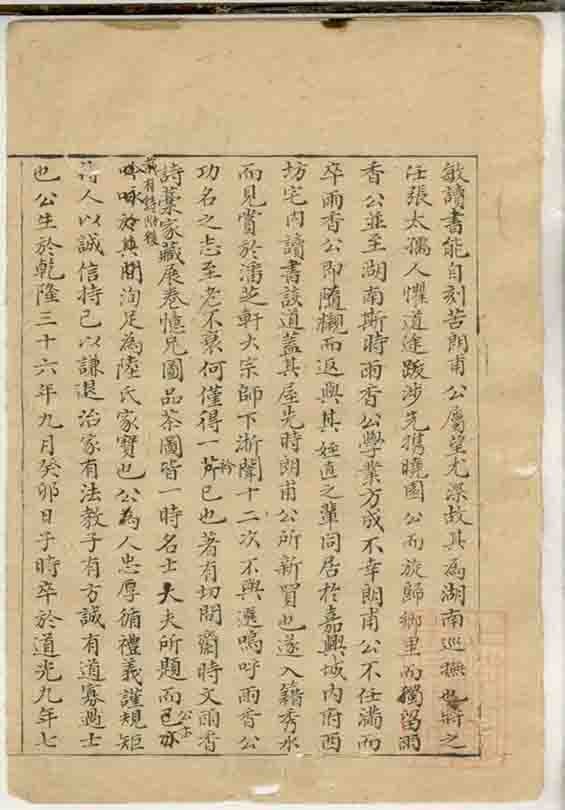 敏讀書能自刻苦朗甫公屬望尤深故其為湖南巡撫也將之
任張太孺人懼道途跋涉先携曉園公而旋歸鄉里而獨留雨
香公並至湖南斯時雨香公學業方成不幸朗甫公不任滿而
卒雨香公即隨櫬而返與其姪直之輩同居於嘉興城內府西
坊宅內讀書談道蓋其屋先時朗甫公所新買也遂入籍秀水
而見賞於潘芝軒大宗師下浙闈十二次不與選嗚呼雨香公
功名之志至老不衰何僅得一衿已也著有切問齋時文雨香
詩藁家藏展卷憶兄圖品茶圖皆一時名士大夫所題而公亦
吟咏於其間洵足為陸氏家寶也公為人忠厚循禮義謹規矩
待人以誠信持己以謙退治家有法教子有方誠有道寡過士
也公生於乾隆三十六年九月癸卯日子時卒於道光九年七